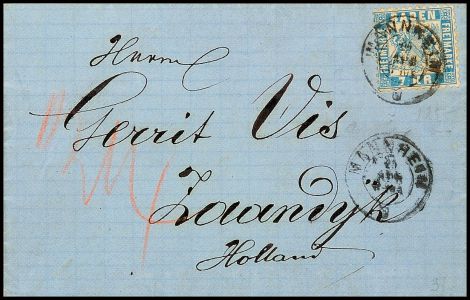 BADEN
FREIMARKE
7 KR.
MANNHEIM
Herrn
Gerrit Vis
MANNHEIM
Zaandyk
Holland